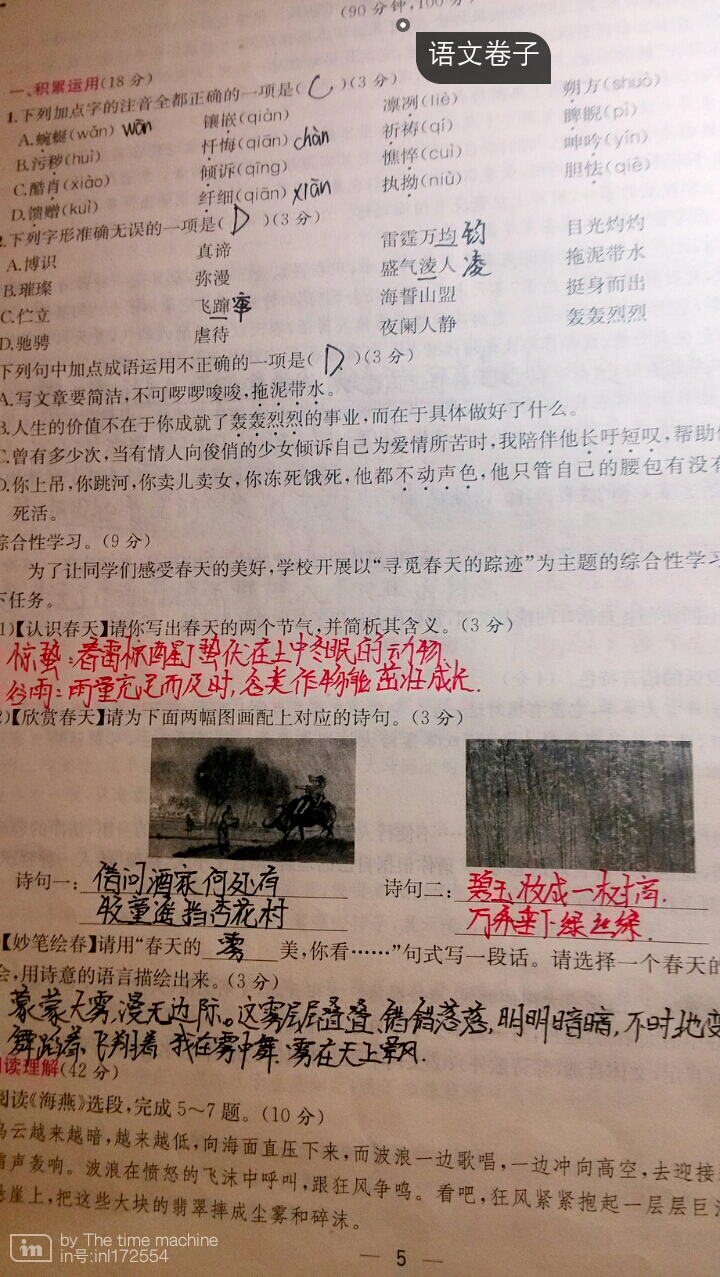 (90分钟,100分)
语文卷子
一、积累运用(18分)
1.下列加点字的注音全都正确的一项是( C )(3分)
A.蜿蜒(wǎn) wān 镶嵌(qiàn) 凛冽(liè) 朔方(shuò)
B.污秽(huì) 忏悔(qiān) chàn 祈祷(qí) 睥睨(pì)
C.酷肖(xiào) 倾诉(qīng) 憔悴(cuì) 呻吟(yín)
D.馈赠(kuì) 纤细(qiān) xiān 执拗(niù) 胆怯(qiè)
2.下列字形准确无误的一项是( D )(3分)
A.博识 真谛 雷霆万均 钧 目光灼灼
B.璀璨 弥漫 盛气淩人 凌 拖泥带水
C.伫立 飞蹿 海誓山盟 挺身而出
D.驰骋 虐待 夜阑人静 轰轰烈烈
下列句中加点成语运用不正确的一项是( D )(3分)
A.写文章要简洁,不可啰啰唆唆,拖泥带水。
B.人生的价值不在于你成就了轰轰烈烈的事业,而在于具体做好了什么。
C.曾有多少次,当有情人向俊俏的少女倾诉自己为爱情所苦时,我陪伴他长吁短叹,帮助
D.你上吊,你跳河,你卖儿卖女,你冻死饿死,他都不动声色,他只管自己的腰包有没有
死活。
综合性学习。(9分)
为了让同学们感受春天的美好,学校开展以“寻觅春天的踪迹”为主题的综合性学习
下任务。
1)【认识春天】请你写出春天的两个节气,并简析其含义。(3分)
惊蛰:春雷惊醒了蛰伏在土中冬眠的动物.
谷雨:雨量充足而及时,谷类作物能茁壮成长.
2)【欣赏春天】请为下面两幅图画配上对应的诗句。(3分)
诗句一: 借问酒家何处有 诗句二: 碧玉妆成一树高.
牧童遥指杏花村 万条垂下绿丝绦.
【妙笔绘春】请用“春天的 雾 美,你看……”句式写一段话。请选择一个春天的
会,用诗意的语言描绘出来。(3分)
蒙蒙大雾,漫无边际。这雾层层叠叠,错错落落,明明暗暗,不时地变
舞蹈着、飞翔着 我在雾中舞.雾在天上乘风.
阅读理解(42分)
阅读《海燕》选段,完成5~7题。(10分)
乌云越来越暗,越来越低,向海面直压下来,而波浪一边歌唱,一边冲向高空,去迎接
雷声轰响。波浪在愤怒的飞沫中呼叫,跟狂风争鸣。看吧,狂风紧紧抱起一层层巨
悬崖上,把这些大块的翡翠摔成尘雾和碎沫。
in by The time machine
in号:inl172554
— 5 —